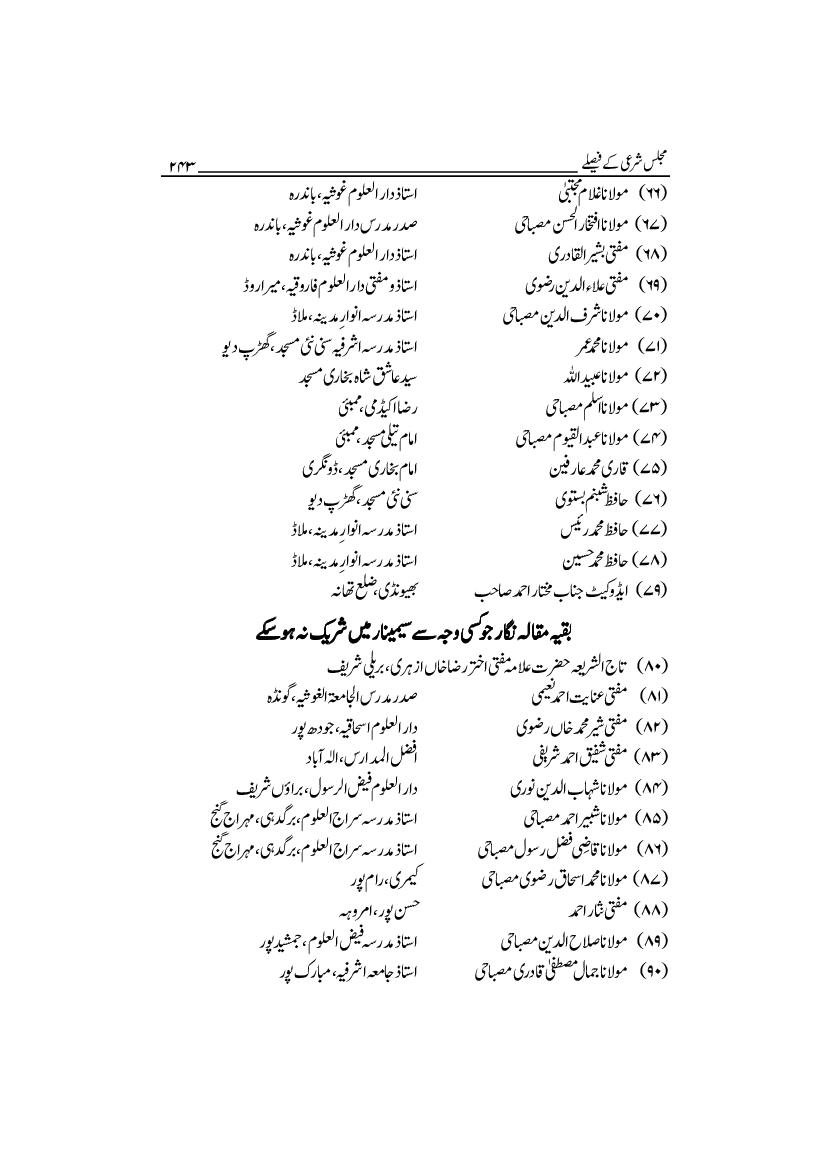 مجلس شرعی کے فیصلے ۲۴۳
(۶۶) مولانا غلام مجتبیٰ استاذ دار العلوم غوثیہ، باندرہ
(۶۷) مولانا افتخار الحسن مصباحی صدر مدرس دار العلوم غوثیہ، باندرہ
(۶۸) مفتی بشیر القادری استاذ دار العلوم غوثیہ، باندرہ
(۶۹) مفتی علاء الدین رضوی استاذ و مفتی دار العلوم فاروقیہ، میرا روڈ
(۷۰) مولانا شرف الدین مصباحی استاذ مدرسہ انوارِ مدینہ، ملاڈ
(۷۱) مولانا محمد عمر استاذ مدرسہ اشرفیہ سنی نئی مسجد، گھڑپ دیو
(۷۲) مولانا عبید اللہ سید عاشق شاہ بخاری مسجد
(۷۳) مولانا اسلم مصباحی رضا اکیڈمی، ممبئی
(۷۴) مولانا عبد القیوم مصباحی امام تیلی مسجد، ممبئی
(۷۵) قاری محمد عارفین امام بخاری مسجد، ڈونگری
(۷۶) حافظ شبنم بستوی سنی نئی مسجد، گھڑپ دیو
(۷۷) حافظ محمد رئیس استاذ مدرسہ انوارِ مدینہ، ملاڈ
(۷۸) حافظ محمد حسین استاذ مدرسہ انوارِ مدینہ، ملاڈ
(۷۹) ایڈوکیٹ جناب مختار احمد صاحب بھیونڈی، ضلع تھانہ
بقیہ مقالہ نگار جو کسی وجہ سے سیمینار میں شریک نہ ہو سکے
(۸۰) تاج الشریعہ حضرت علامہ مفتی اختر رضا خاں ازہری، بریلی شریف
(۸۱) مفتی عنایت احمد نعیمی صدر مدرس الجامعۃ الغوثیہ، گونڈہ
(۸۲) مفتی شیر محمد خاں رضوی دار العلوم اسحاقیہ، جودھ پور
(۸۳) مفتی شفیق احمد شریفی افضل المدارس، الٰہ آباد
(۸۴) مولانا شہاب الدین نوری دار العلوم فیض الرسول، براؤں شریف
(۸۵) مولانا شبیر احمد مصباحی استاذ مدرسہ سراج العلوم، برگدہی، مہراج گنج
(۸۶) مولانا قاضی فضل رسول مصباحی استاذ مدرسہ سراج العلوم، برگدہی، مہراج گنج
(۸۷) مولانا محمد اسحاق رضوی مصباحی کیمری، رام پور
(۸۸) مفتی نثار احمد حسن پور، امروہہ
(۸۹) مولانا صلاح الدین مصباحی استاذ مدرسہ فیض العلوم، جمشید پور
(۹۰) مولانا جمال مصطفیٰ قادری مصباحی استاذ جامعہ اشرفیہ، مبارک پور